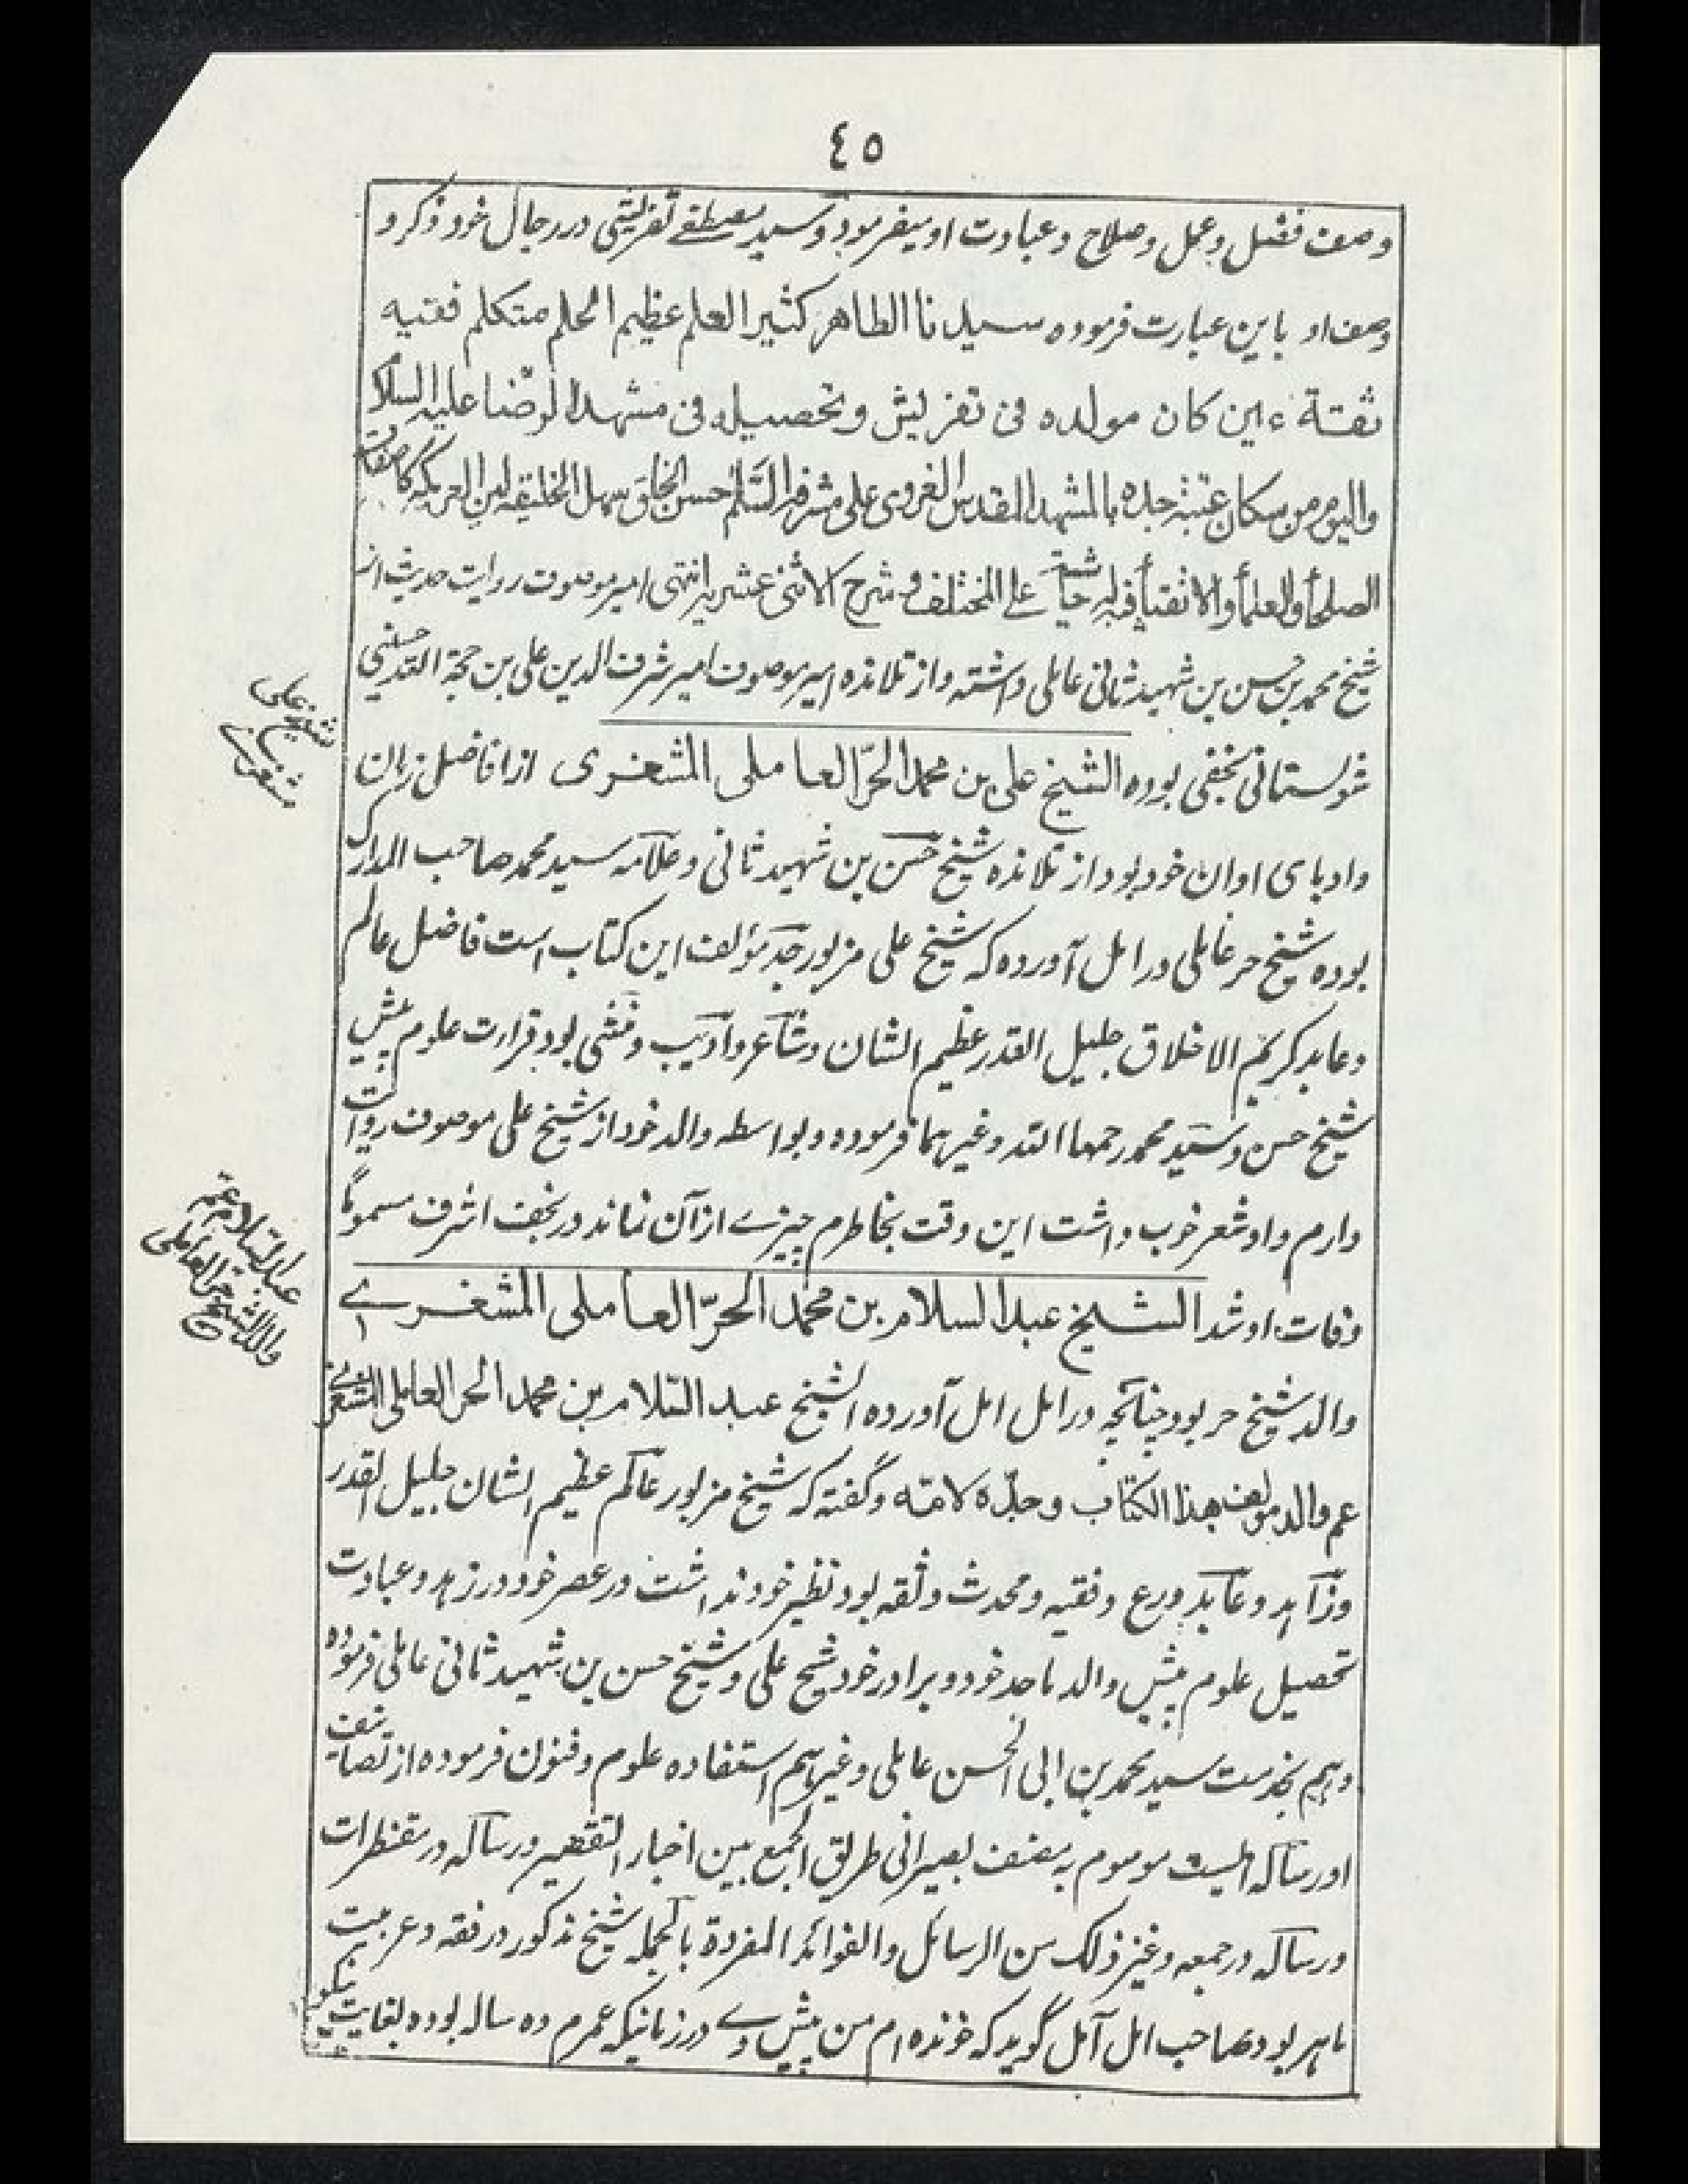 ٤٥
وصف فضل و عمل و صلاح و عبادت او میفرمود و سید مصطفے تفریشی در رجال خود ذکر و
وصف او باین عبارت فرموده سیدنا الطاهر کثیر العلم عظیم الحلم متکلم فقیه
ثقة عین کان مولده فی تفریش و تحصیله فی مشهد الرضا علیه السلام
والیوم من سکان عتبة جده بالمشهد المقدس الغروی علی مشرفه السّلم حسن الخلق سهل الخلیقه لین العریکه کل صفات
الصلحاء والعلماء والاتقیاء فیه له حاشیة علی المختلف و شرح الاثنی عشریه انتهی امیر موصوف روایت حدیث از
شیخ محمد بن حسن بن شهید ثانی عاملی داشته و از تلامذه امیر موصوف امیر شرف الدین علی بن حجة الله حسنی
شولستانی نجفی بوده الشیخ علی بن محمد الحرّ العاملی المشغری از افاضل زمان
و ادبای اوان خود بود از تلامذه شیخ حسن بن شهید ثانی و علامه سید محمد صاحب المدارک
بوده شیخ حر عاملی در امل آورده که شیخ علی مزبور جد مؤلف این کتاب است فاضل عالم
و عابد کریم الاخلاق جلیل القدر عظیم الشان و شاعر و ادیب و منشی بود قرارت علوم پیش
شیخ حسن و سید محمد رحمهما الله و غیرهما فرموده و بواسطه والد خود از شیخ علی موصوف روایت
دارم و او شعر خوب داشت این وقت بخاطرم چیزے ازآن نماند در نجف اشرف مسموما
وفات او شد الشیخ عبد السلام بن محمد الحرّ العاملی المشغرے
والد شیخ حر بود چنانچه در امل امل آورده الشیخ عبد السّلام بن محمد الحر العاملی المشغری
عم والد مولف هذا الکتاب و جدّه لامّه و گفته که شیخ مزبور عالم عظیم الشان جلیل القدر
و زاهد و عابد و ورع و فقیه و محدث و ثقه بود نظیر خود نداشت در عصر خود در زهد و عبادت
تحصیل علوم پیش والد ماجد خود و برادر خود شیخ علی و شیخ حسن بن شهید ثانی عاملی فرموده
و هم بخدمت سید محمد بن ابی الحسن عاملی و غیرهم استفاده علوم و فنون فرموده از تصانیف
او رساله الیست موسوم به بصیرانی طریق الجمع بین اخبار التقصیر و رساله در مفطرات
و رساله در جمعه و غیر ذلک من الرسائل والفوائد المفردة بالجمله شیخ مذکور در فقه و عربیت
ماهر بود صاحب امل آمل گوید که خوانده ام من پیش وے در زمانیکه عمرم ده ساله بوده بغایت نیکو
شیخ علی
مشغری
عبد السلام عم
والد الشیخ حر العاملی